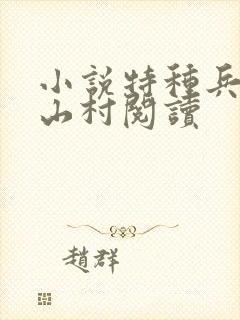 小説特種兵
山村閱讀
趙群